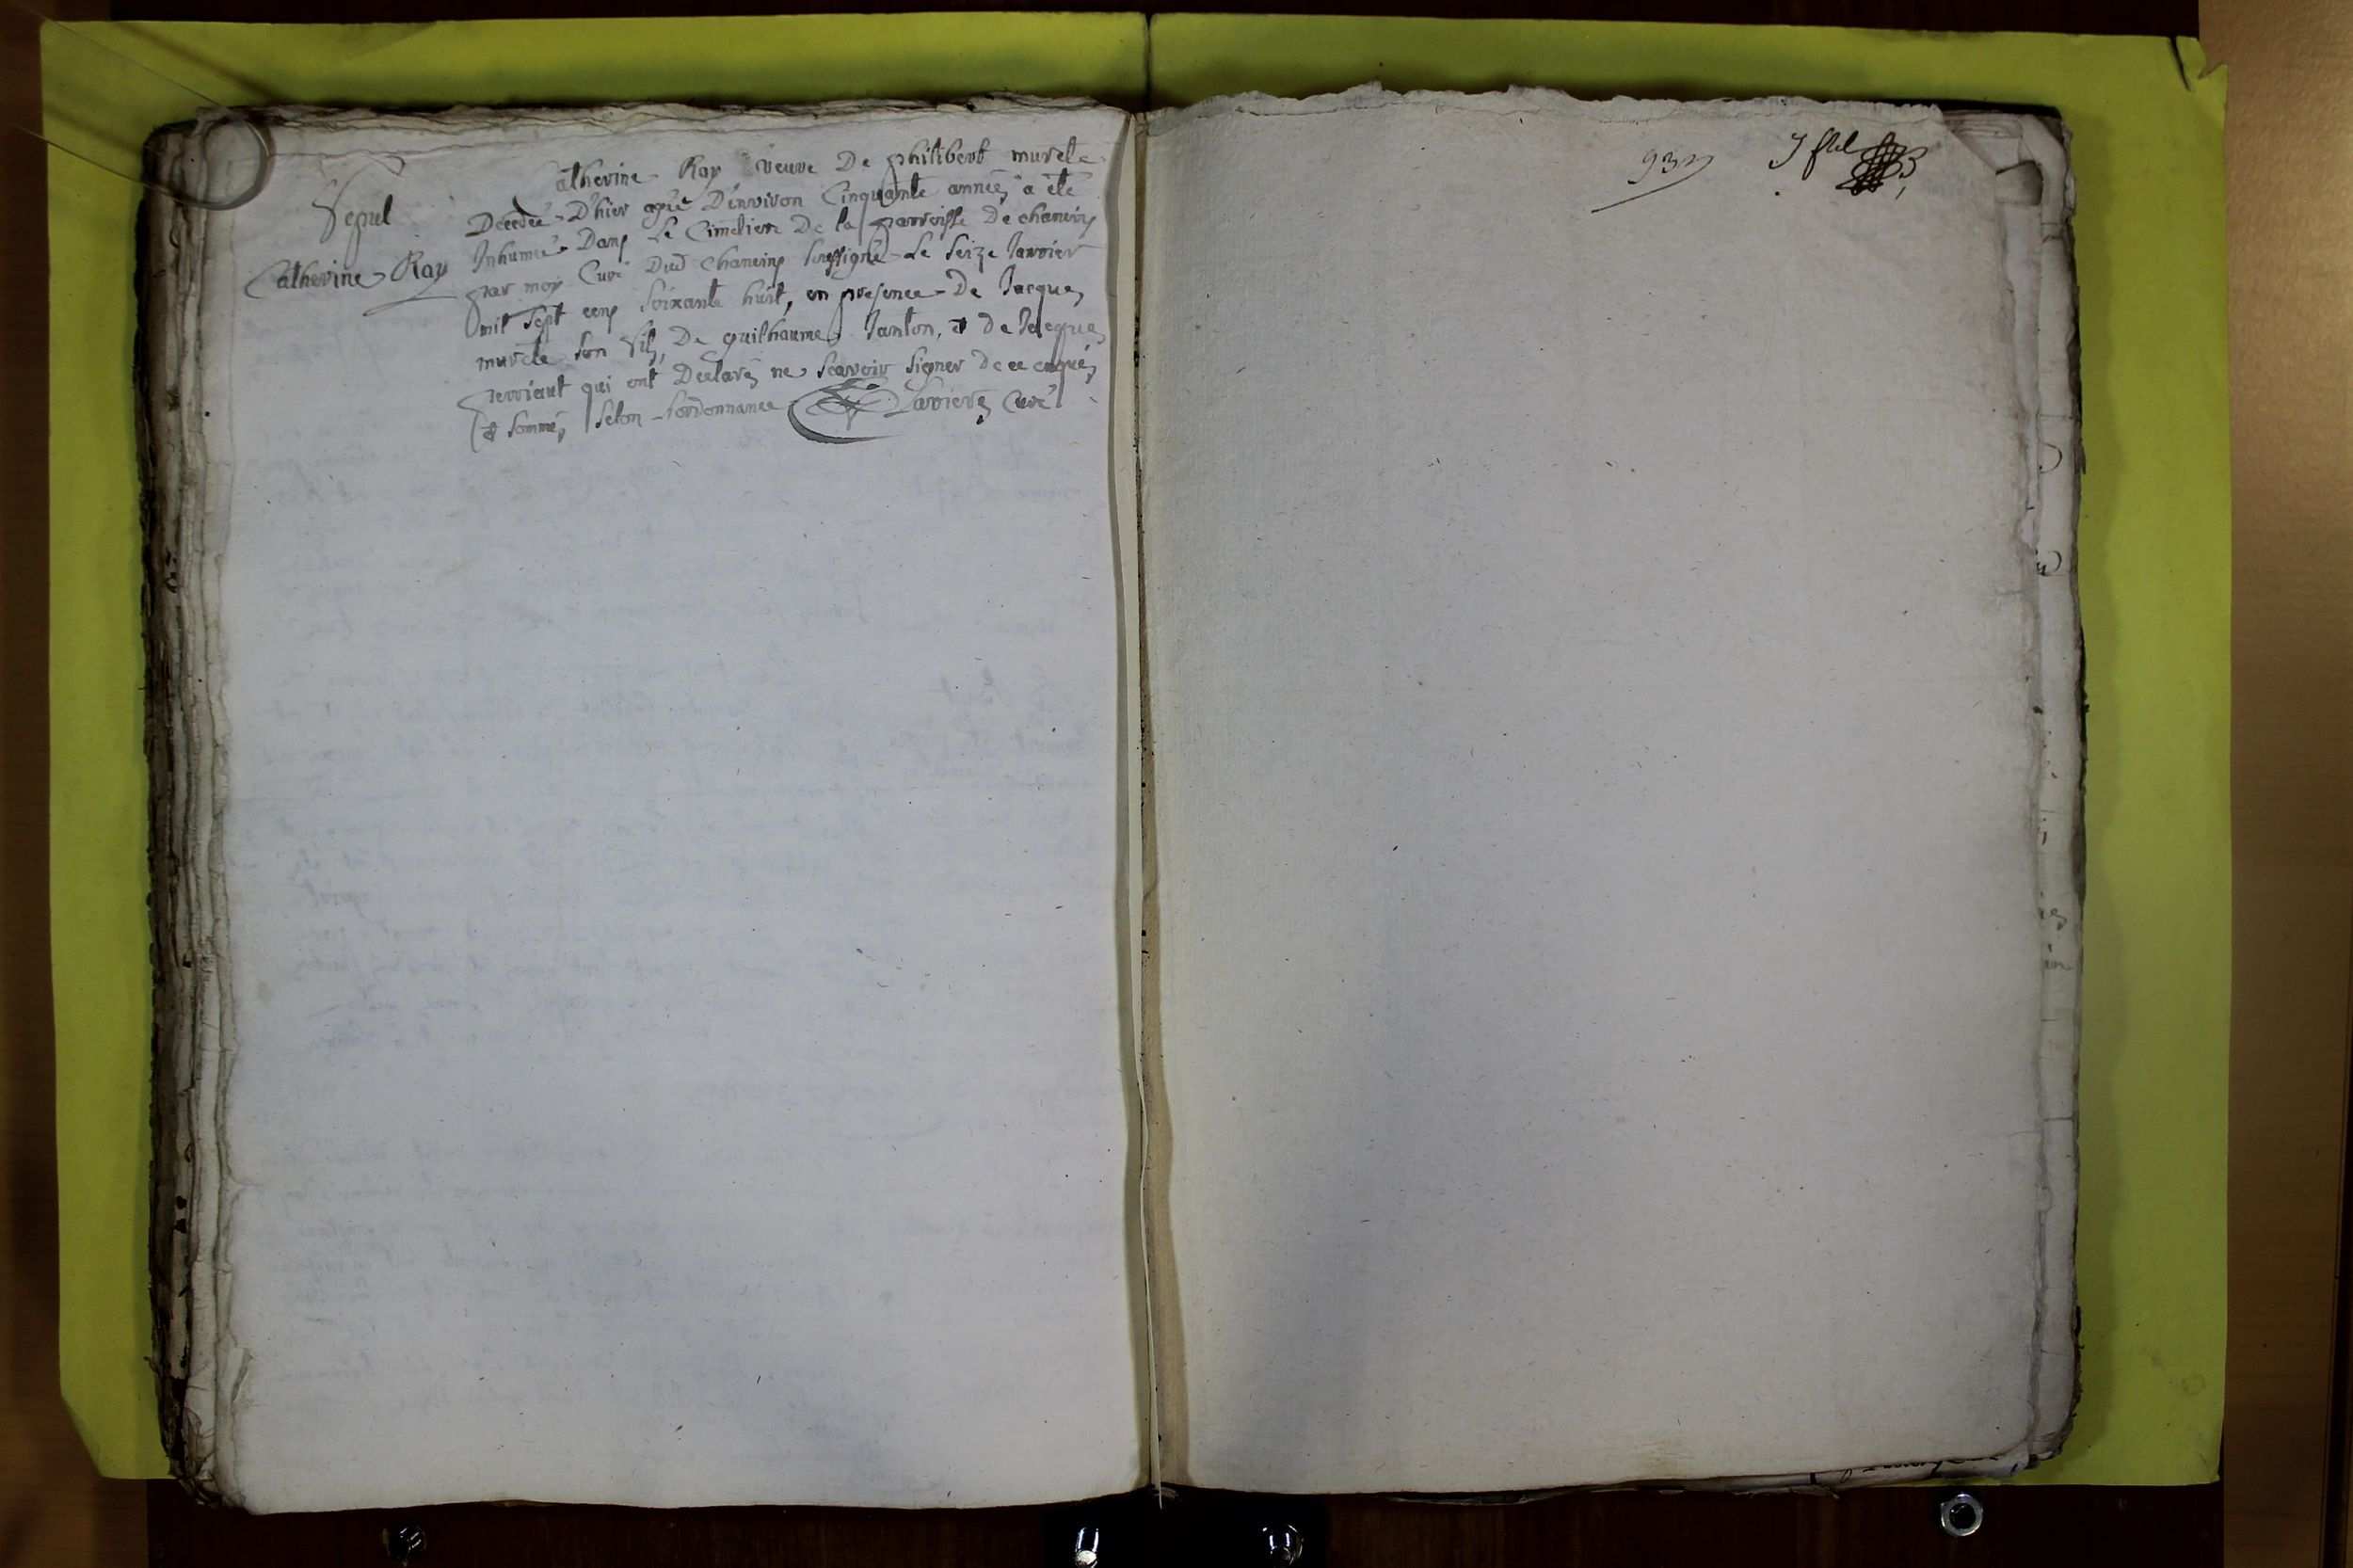 Sepul
Catherine Ray
Catherine Ray veuve De philibert murele
Décedée D'hier agée D'environ Cinquante années a été
Inhumée Dans Le Cimetiere De la parroisse De chameins
par moy Curé Dud chameins soussigné Le seize Janvier
mil sept cens soixante huit, en presence De Jacques
murele son fils, De guilhaume Janton, et de Jacques
perriaut qui ont Declarés ne scavoir signer de ce enquis,
et sommés selon lordonnance Laviere Curé
93